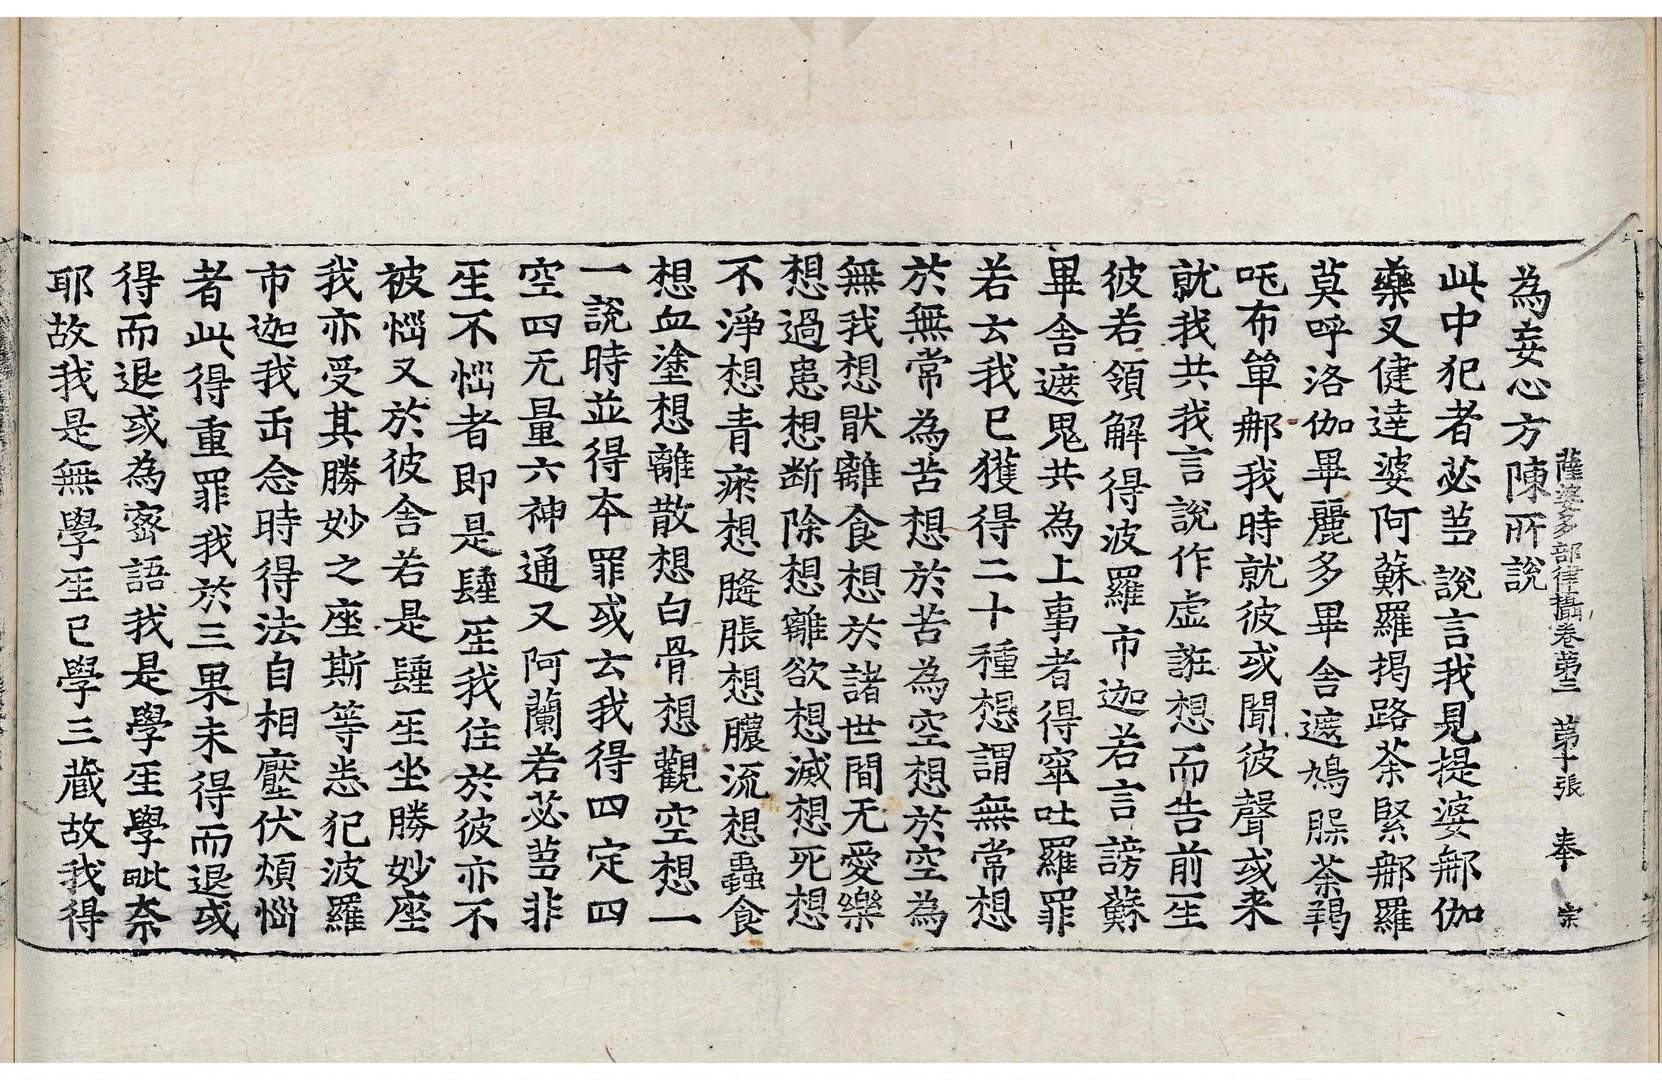 薩婆多部律攝卷第三　第十張　奉　宗
為妄心方陳所說
此中犯者苾芻說言我見提婆𨚗伽
藥叉健達婆阿蘇羅揭路茶緊𨚗羅
莫呼洛伽畢麗多畢舍遮鳩𦜕茶羯
吒布單𨚗我時就彼或聞彼聲或来
就我共我言說作虛誑想而告前生
彼若領解得波羅市迦若言謗蘇
畢舍遮鬼共為上事者得窣吐羅罪
若云我已獲得二十種想謂無常想
於無常為苦想於苦為空想於空為
無我想猒離食想於諸世間无愛樂
想過患想断除想離欲想滅想死想
不淨想青瘀想膖脹想膿流想蟲食
想血塗想離散想白骨想觀空想一
一說時並得夲罪或云我得四定四
空四无量六神通又阿蘭若苾芻非
𤯔不惱者即是𨤲𤯔我住於彼亦不
被惱又於彼舍若是𨤲𤯔坐勝妙座
我亦受其勝妙之座斯等悉犯波羅
市迦我缶念時得法自相壓伏煩惱
者此得重罪我於三果未得而退或
得而退或為密語我是學𤯔學毗奈
耶故我是無學𤯔已學三蔵故我得